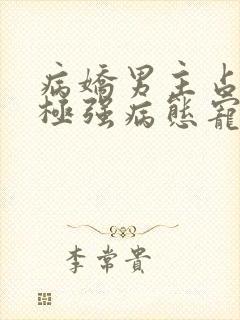 病嬌男主占
極强病態寵
李常貴